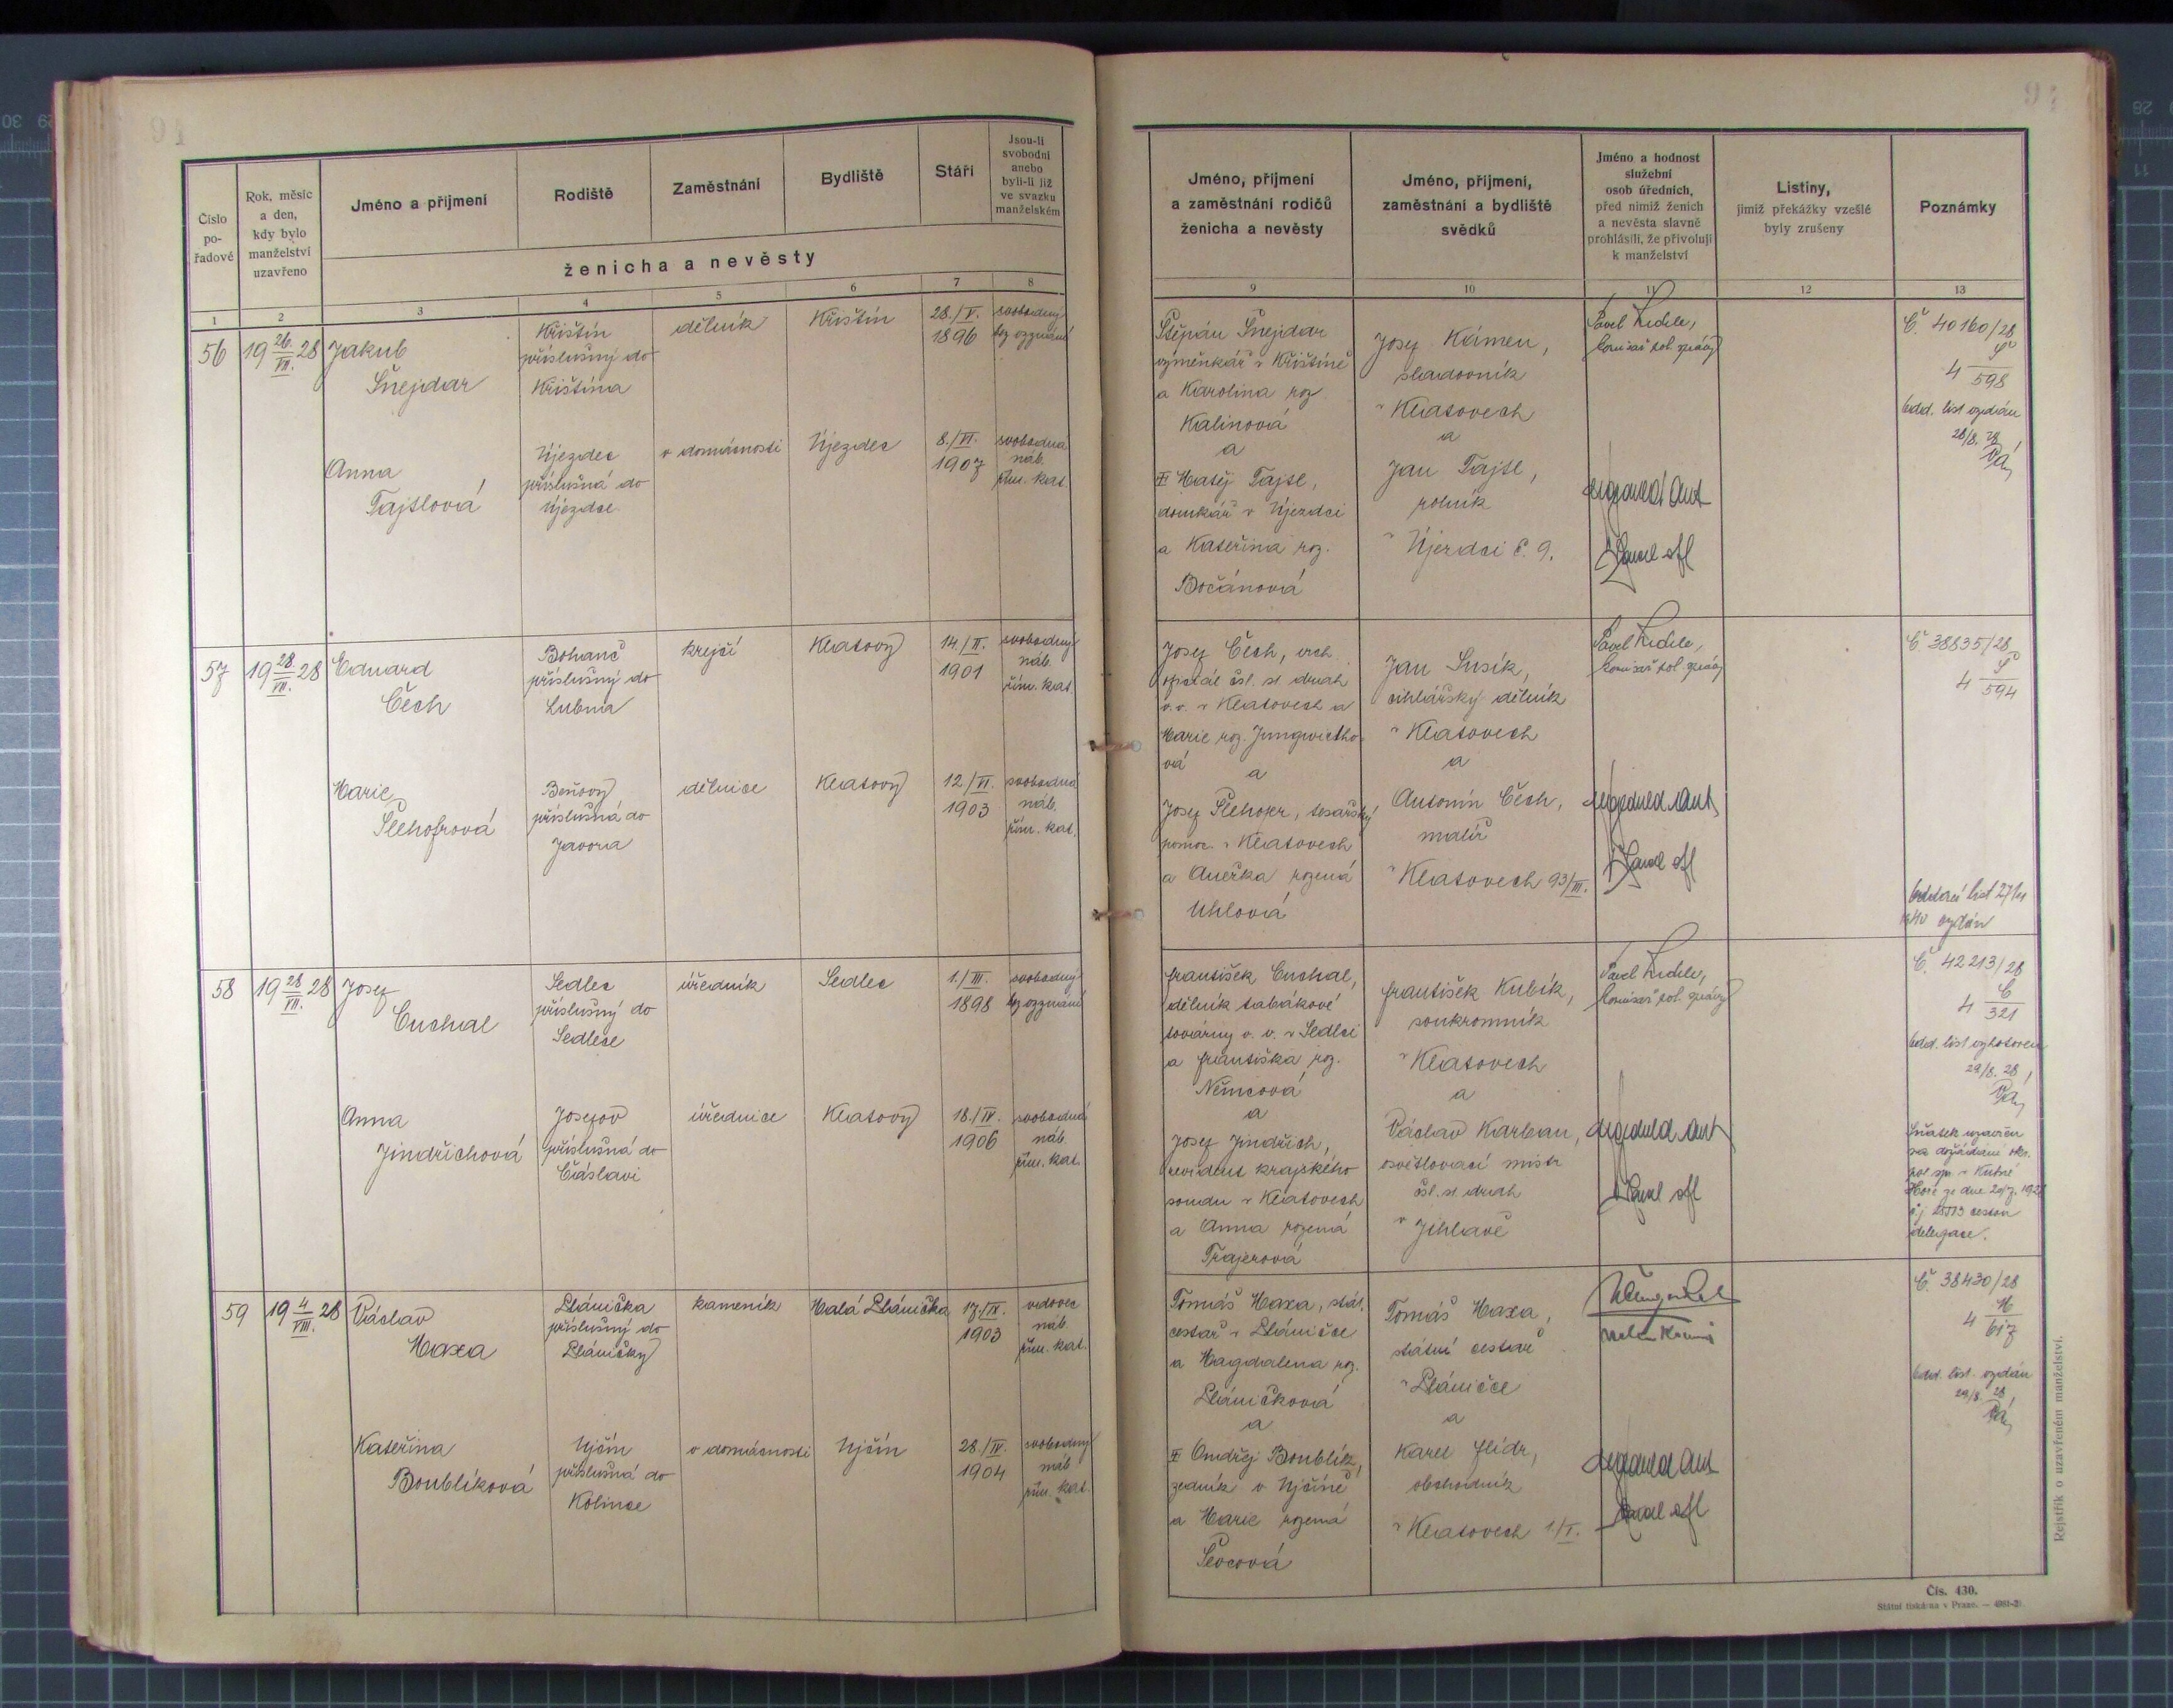 Číslo
po-
řadové
Rok, měsíc
a den,
kdy bylo
manželství
uzavřeno
Jméno a příjmení
Rodiště
Zaměstnání
Bydliště
Stáří
Jsou-li
svobodni
anebo
byli-li již
ve svazku
manželském
ženicha a nevěsty
1 2 3 4 5 6 7 8
56
19 26./VII. 28
Jakub
Šnejdar
Křištín
příslušný do
Křištína
dělník
Křištín
28./V.
1896
svobodný
bez vyznání
Anna
Tajtlová
Újezdec
příslušná do
Újezdce
v domácnosti
Újezdec
8./VI.
1907
svobodná
náb.
řím. kat.
57
19 28/VII. 28
Eduard
Čech
příslušný do
Lubna
krejčí
Klatovy
14/II.
1901
svobodný
náb.
řím. kat.
Marie
Šlehofrová
Beňovy
příslušná do
Javora
dělnice
Klatovy
12/VI.
1903
svobodná
náb.
řím. kat.
58
19 28/VII. 28
Josef
Cuchal
Sedlec
příslušný do
Sedlece
úředník
Sedlec
1./III.
1898
svobodný
bez vyznání
Anna
Jindřichová
Josefov
příslušná do
Čáslavi
úřednice
Klatovy
18./IV.
1906
svobodná
náb.
řím. kat.
59
19 4/VIII. 28
Václav
Maxa
Plánička
příslušný do
Pláničky
kameník
Malá Plánička
17/IX.
1903
vdovec
náb.
řím. kat.
Kateřina
Boublíková
Ujčín
příslušná do
Kolince
v domácnosti
Ujčín
28./IV.
1904
svobodný
náb.
řím. kat.
Jméno, příjmení
a zaměstnání rodičů
ženicha a nevěsty
Jméno, příjmení,
zaměstnání a bydliště
svědků
Jméno a hodnost
služební
osob úředních,
před nimiž ženich
a nevěsta slavně
prohlásili, že přivolují
k manželství
Listiny,
jimiž překážky vzešlé
byly zrušeny
Poznámky
9 10 11 12 13
Štěpán Šnejdar
výměnkář v Křištíně
a Karolina roz.
Kalinová
a
Matěj Tajtl,
domkář v Újezdci
a Kateřina roz.
Bočánová
Josef Kámen,
sladovník
v Klatovech
a
Jan Tajtl,
rolník
v Újezdci č. 9.
Pavel
komisař pol. správy
Č. 40160/28
4 Š/598
odd. list vydán
28/8. 28
Josef Čech, vrch.
čsl. st. drah
v. v. v Klatovech a
Marie roz. Jungwirtho-
vá
a
Josef Šlehofer, tesařský
pomoc. v Klatovech
a Anežka rozená
Uhlová
Jan Susík,
cihlářský dělník
v Klatovech
a
Antonín Čech,
malíř
v Klatovech 93/III.
Pavel
komisař pol. správy
Č. 38835/28
4 Š/594
Oddací list 27/
vydán
František Cuchal,
dělník tabákové
továrny v. v. v Sedlci
a Františka roz.
Němcová
a
Josef Jindřich,
revident krajského
soudu v Klatovech
a Anna rozená
Trajerová
František Kubík,
soukromník
v Klatovech
a
Václav Karban,
osvětlovací mistr
čsl. st. drah
v Jihlavě
Pavel
komisař pol. správy
Č. 42213/28
4 C/321
odd. list vyhotoven
29/8. 28
Sňatek uzavřen
na dožádání okr.
pol. spr. v Kutné
Hoře ze dne
cestou
delegace.
Tomáš Maxa, stát.
cestář v Pláničce
a Magdalena roz.
Pláničková
a
Ondřej Boublík,
zedník v Ujčíně
a Marie rozená
Ševcová
Tomáš Maxa,
státní cestář
v Pláničce
a
Karel Flídr,
obchodník
v Klatovech 1/I.
Č. 38430/28
4 M/617
odd. list. vydán
29/8. 28
Rejstřík o uzavřeném manželství.
Čís. 430.
Státní tiskárna v Praze.